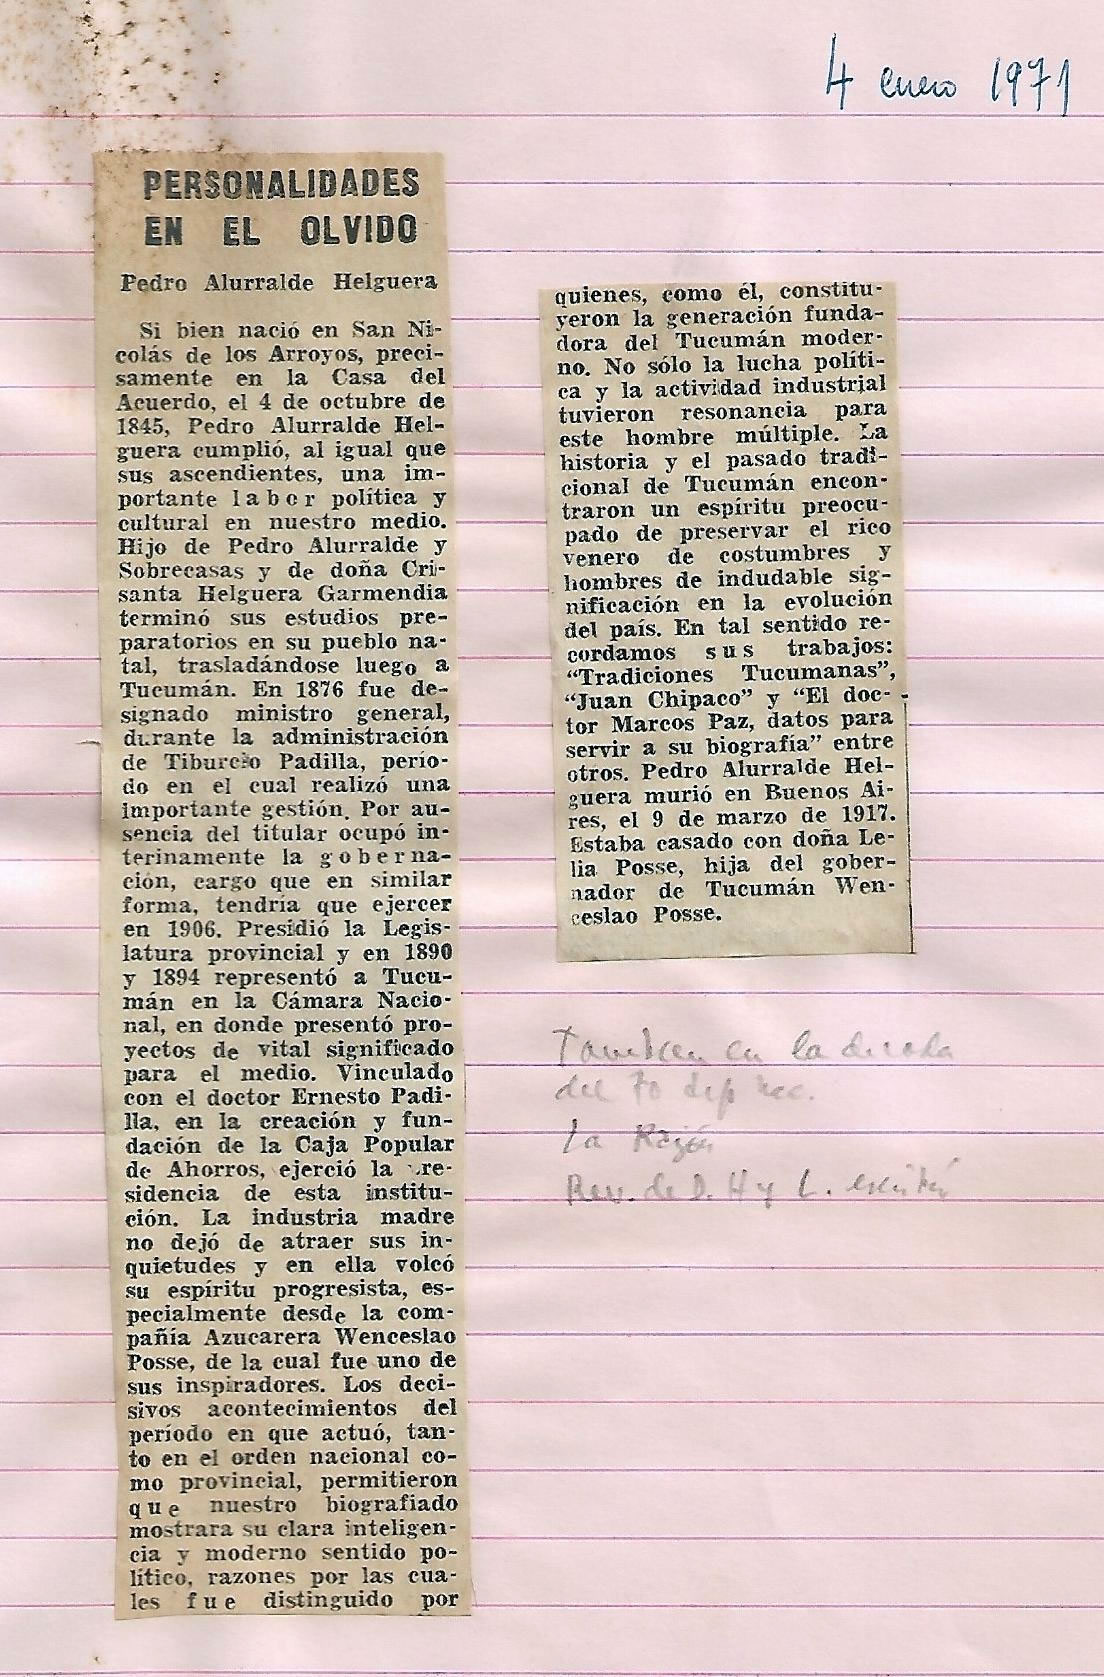 4 enero 1971
PERSONALIDADES
EN EL OLVIDO
Pedro Alurralde Helguera
Si bien nació en San Ni-
colás de los Arroyos, preci-
samente en la Casa del
Acuerdo, el 4 de octubre de
1845, Pedro Alurralde Hel-
guera cumplió, al igual que
sus ascendientes, una im-
portante labor política y
cultural en nuestro medio.
Hijo de Pedro Alurralde y
Sobrecasas y de doña Cri-
santa Helguera Garmendia
terminó sus estudios pre-
paratorios en su pueblo na-
tal, trasladándose luego a
Tucumán. En 1876 fue de-
signado ministro general,
durante la administración
de Tiburcio Padilla, perío-
do en el cual realizó una
importante gestión. Por au-
sencia del titular ocupó in-
terinamente la goberna-
ción, cargo que en similar
forma, tendría que ejercer
en 1906. Presidió la Legis-
latura provincial y en 1890
y 1894 representó a Tucu-
mán en la Cámara Nacio-
nal, en donde presentó pro-
yectos de vital significado
para el medio. Vinculado
con el doctor Ernesto Padi-
lla, en la creación y fun-
dación de la Caja Popular
de Ahorros, ejerció la re-
sidencia de esta institu-
ción. La industria madre
no dejó de atraer sus in-
quietudes y en ella volcó
su espíritu progresista, es-
pecialmente desde la com-
pañía Azucarera Wenceslao
Posse, de la cual fue uno de
sus inspiradores. Los deci-
sivos acontecimientos del
período en que actuó, tan-
to en el orden nacional co-
mo provincial, permitieron
que nuestro biografiado
mostrara su clara inteligen-
cia y moderno sentido po-
lítico, razones por las cua-
les fue distinguido por
quienes, como él, constitu-
yeron la generación funda-
dora del Tucumán moder-
no. No sólo la lucha políti-
ca y la actividad industrial
tuvieron resonancia para
este hombre múltiple. La
historia y el pasado tradi-
cional de Tucumán encon-
traron un espíritu preocu-
pado de preservar el rico
venero de costumbres y
hombres de indudable sig-
nificación en la evolución
del país. En tal sentido re-
cordamos sus trabajos:
"Tradiciones Tucumanas",
"Juan Chipaco" y "El doc-
tor Marcos Paz, datos para
servir a su biografía" entre
otros. Pedro Alurralde Hel-
guera murió en Buenos Ai-
res, el 9 de marzo de 1917.
Estaba casado con doña Le-
lia Posse, hija del gober-
nador de Tucumán Wen-
ceslao Posse.
Tambien en la decada
del 70 dip nac.
La Razón
Rev. de D. H y L.